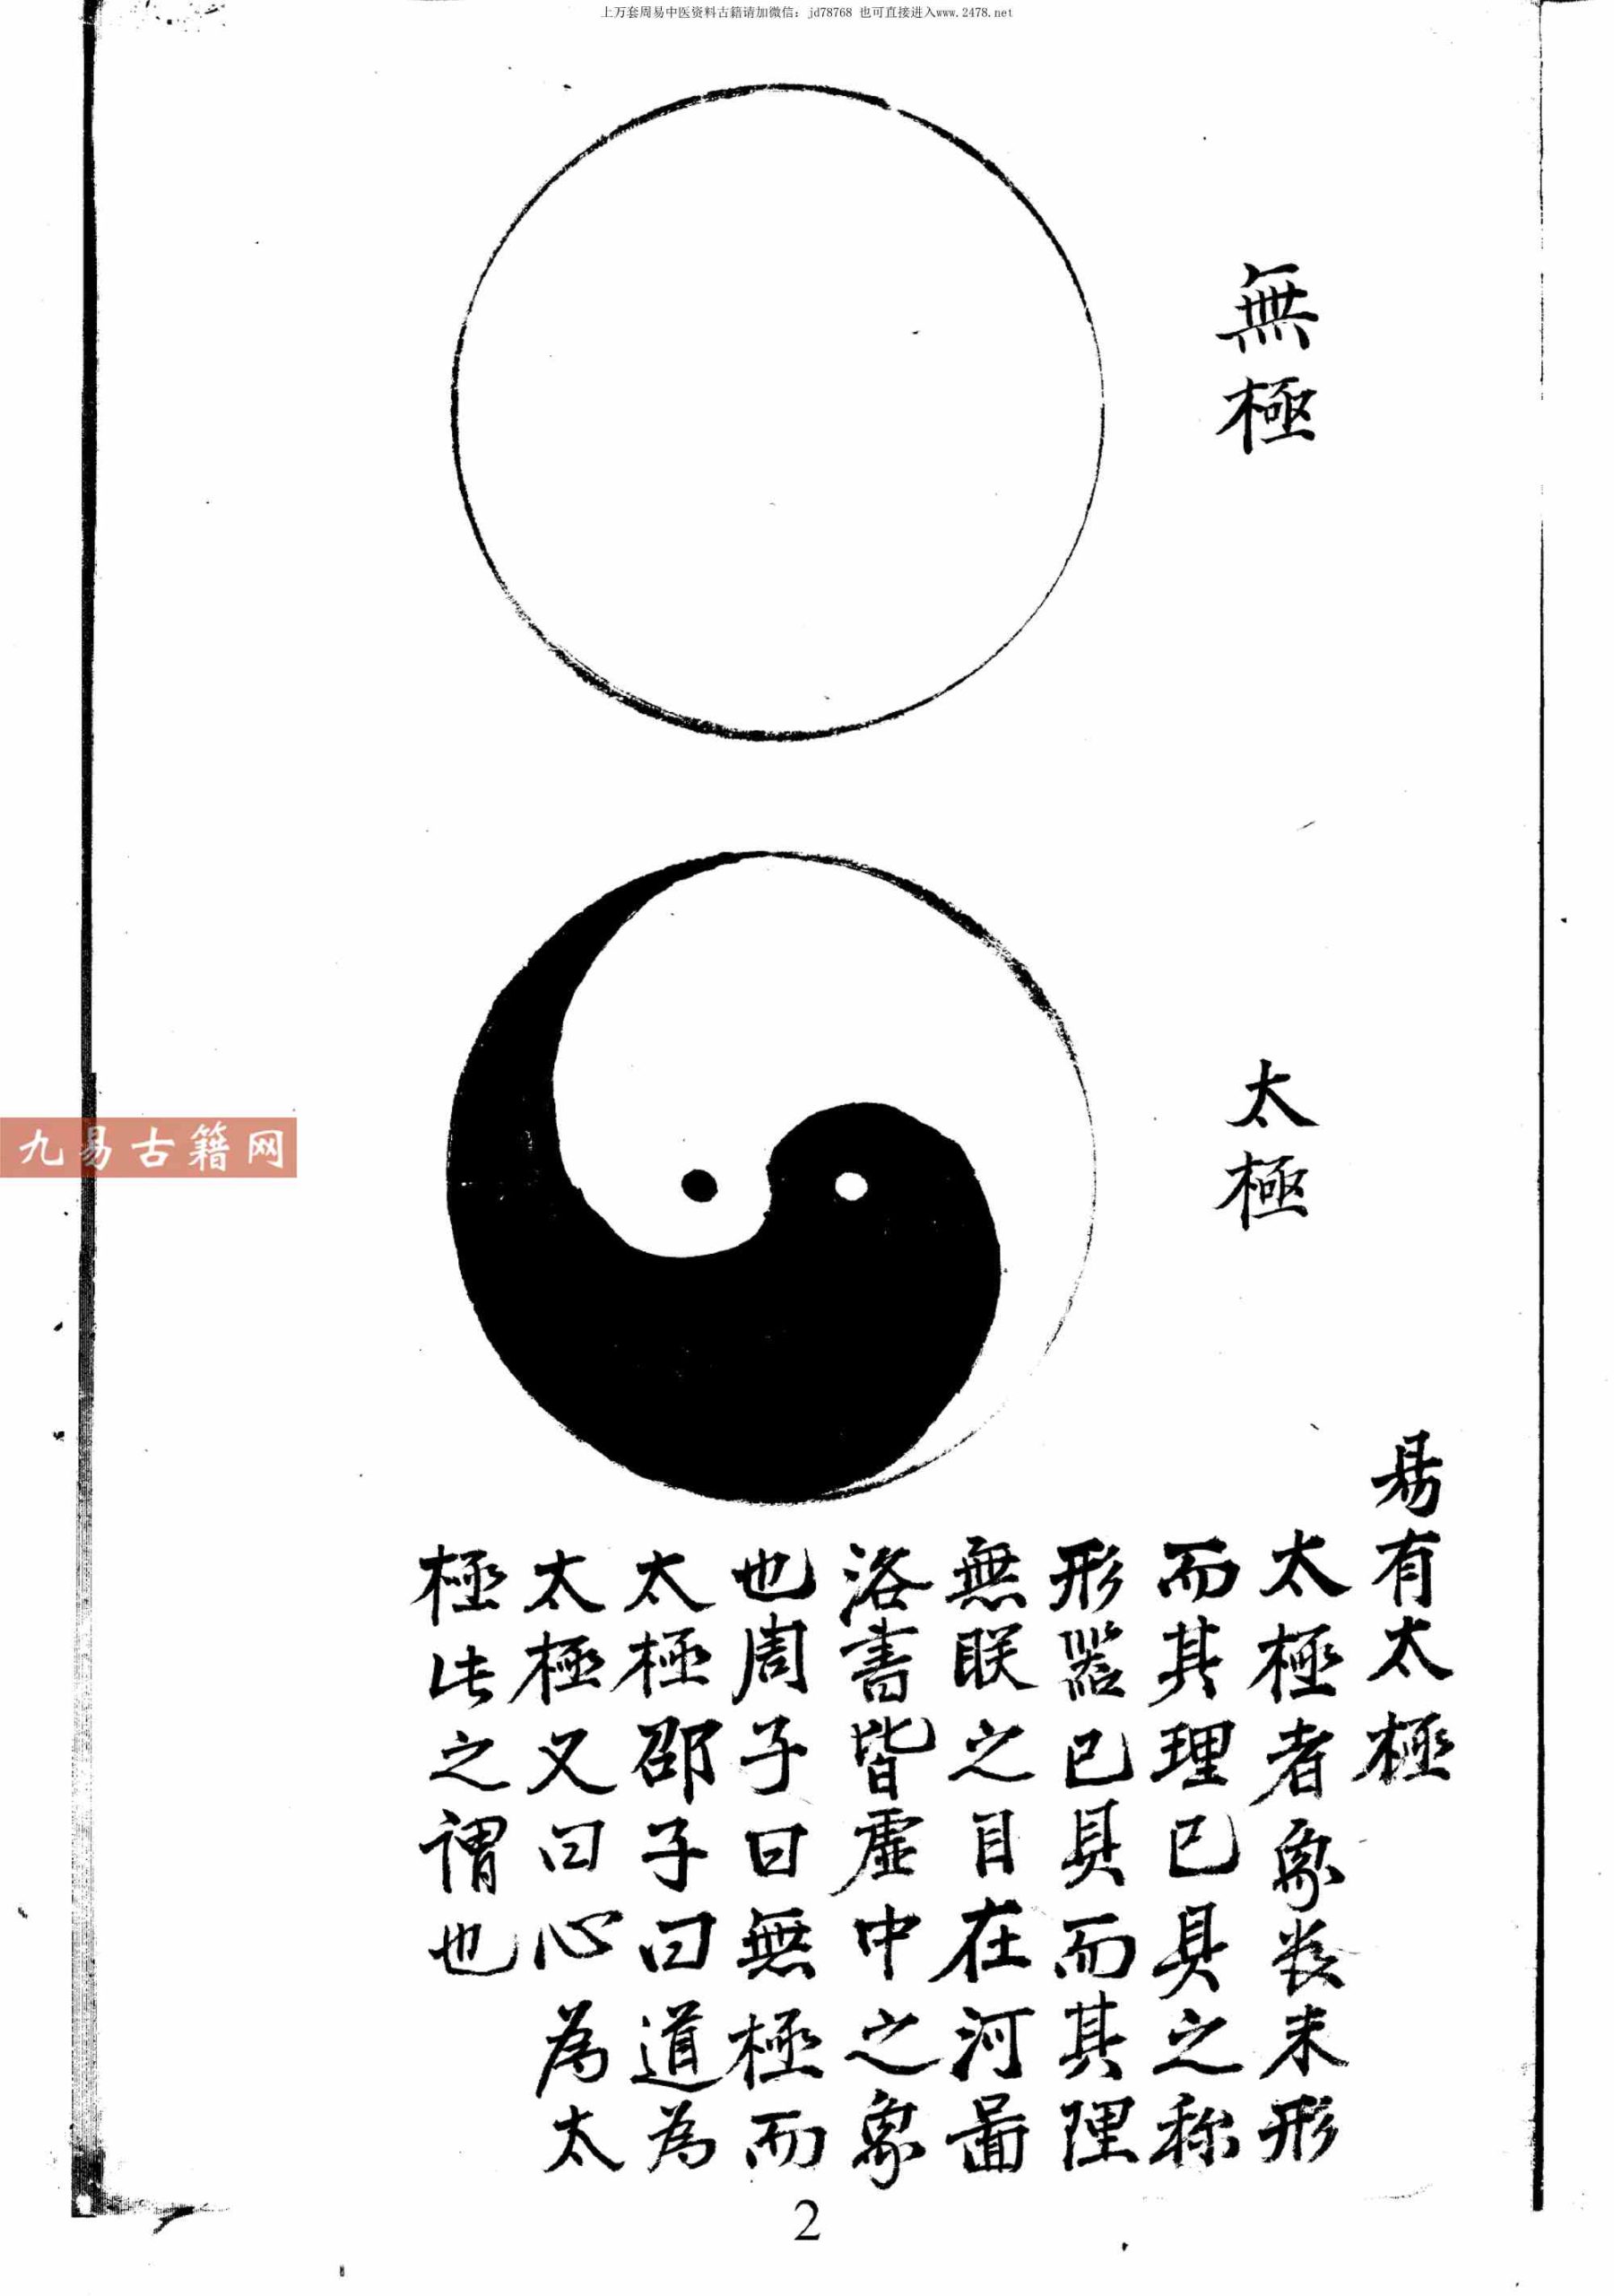 上万套周易中医资料古籍请加微信：jd78768 也可直接进入www.2478.net
無極
太極
九易古籍网
易有太極
太極者象数未形
而其理已具之称
形器已具而其理
無眹之目在河圖
洛書皆虛中之象
也周子曰無極而
太極邵子曰道為
太極又曰心為太
極此之謂也
2